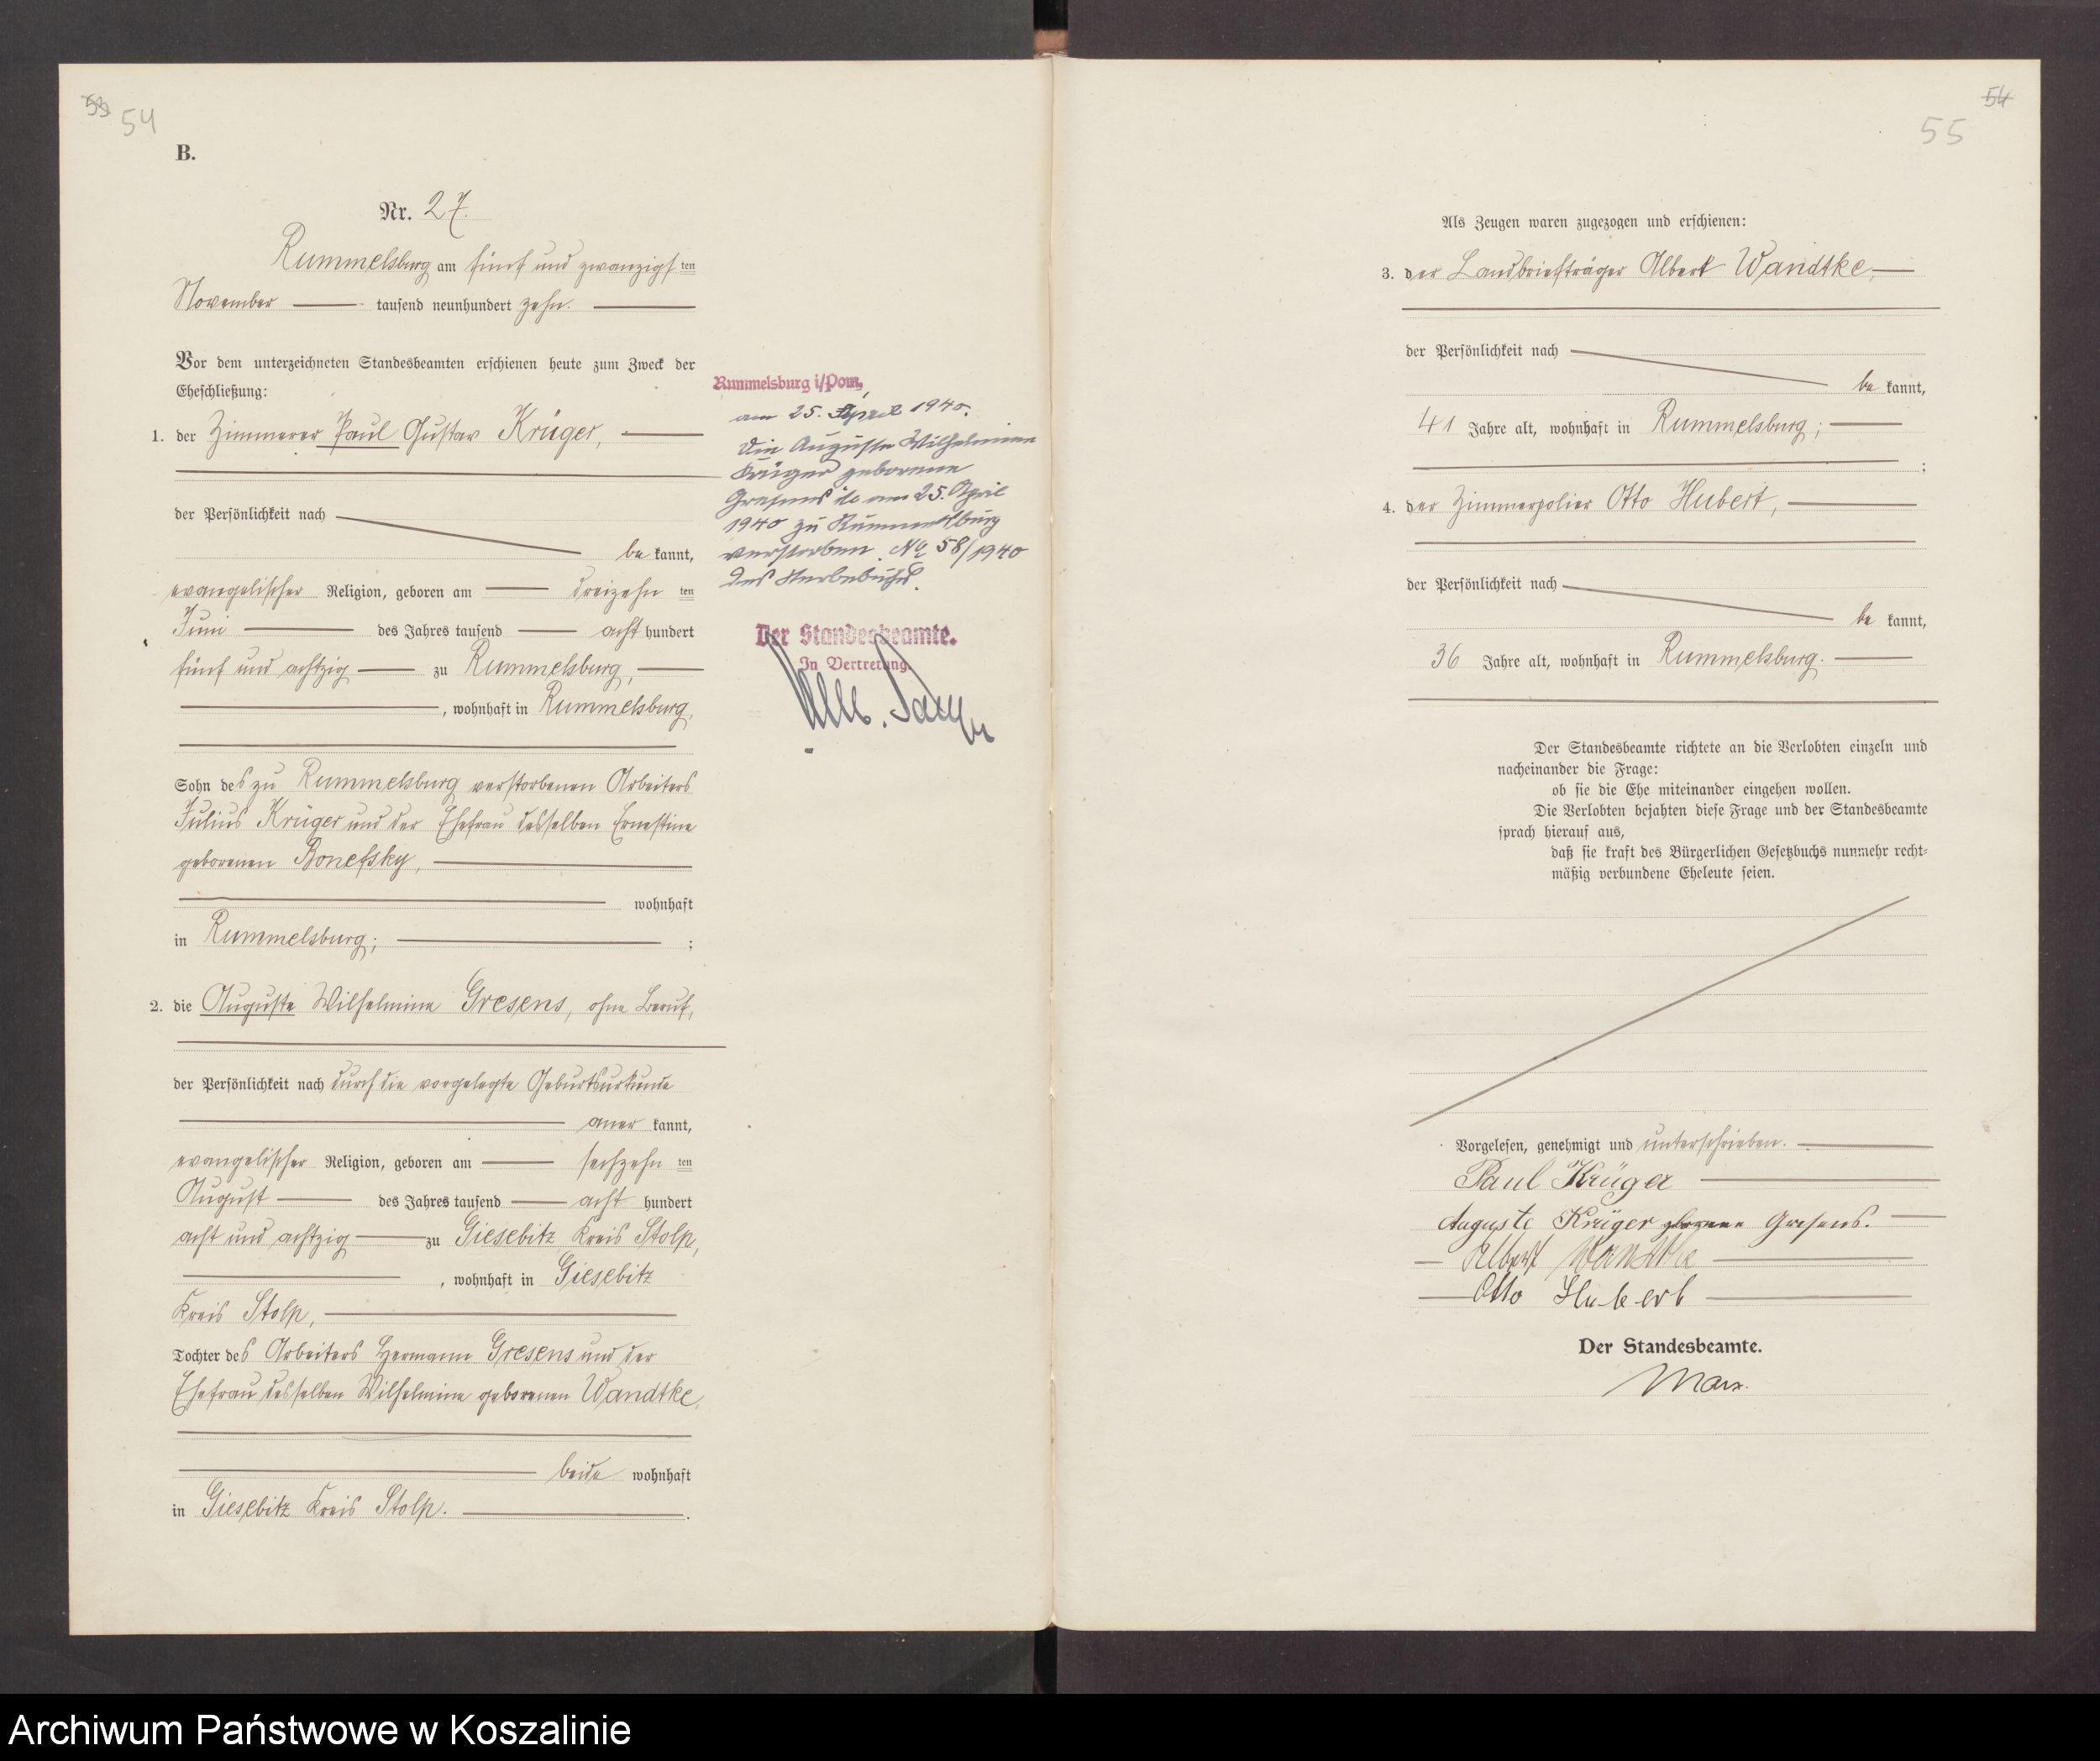 53 54
B.
Nr. 27.
Rummelsburg am fünf und zwanzigsten
November tausend neunhundert zehn.
Vor dem unterzeichneten Standesbeamten erschienen heute zum Zweck der
Eheschließung:
1. der Zimmerer Paul Gustav Krüger,
der Persönlichkeit nach
be kannt,
evangelischer Religion, geboren am dreizehn ten
Juni des Jahres tausend acht hundert
fünf und achtzig zu Rummelsburg,
, wohnhaft in Rummelsburg,
Sohn des zu Rummelsburg verstorbenen Arbeiters
Julius Krüger und der Ehefrau desselben Ernestine
geborenen Bonefsky,
wohnhaft
in Rummelsburg; ;
2. die Auguste Wilhelmine Gresens, ohne Beruf,
der Persönlichkeit nach durch die vorgelegte Geburtsurkunde
aner kannt,
evangelischer Religion, geboren am sechzehn ten
August des Jahres tausend acht hundert
acht und achtzig zu Giesebitz Kreis Stolp,
, wohnhaft in Giesebitz
Kreis Stolp,
Tochter des Arbeiters Hermann Gresens und der
Ehefrau desselben Wilhelmine geborenen Wandtke,
beide wohnhaft
in Giesebitz Kreis Stolp. .
Rummelsburg i/Pom,
am 25. April 1940.
Die Auguste Wilhelmine
Krüger geborene
Gresens ist am 25. April
1940 zu Rummelsburg
verstorben. No 58/1940
des Sterbebuchs.
Der Standesbeamte.
In Vertretung.
54
55
Als Zeugen waren zugezogen und erschienen:
3. der Landbriefträger Albert Wandtke,
der Persönlichkeit nach
be kannt,
41 Jahre alt, wohnhaft in Rummelsburg;
;
4. der Zimmerpolier Otto Hubert,
der Persönlichkeit nach
be kannt,
36 Jahre alt, wohnhaft in Rummelsburg.
Der Standesbeamte richtete an die Verlobten einzeln und
nacheinander die Frage:
ob sie die Ehe miteinander eingehen wollen.
Die Verlobten bejahten diese Frage und der Standesbeamte
sprach hierauf aus,
daß sie kraft des Bürgerlichen Gesetzbuchs nunmehr recht-
mäßig verbundene Eheleute seien.
Vorgelesen, genehmigt und unterschrieben.
Paul Krüger
Auguste Krüger geborene Gresens.
Albert Wandtke
Otto Hubert
Der Standesbeamte.
Marx.
Archiwum Państwowe w Koszalinie